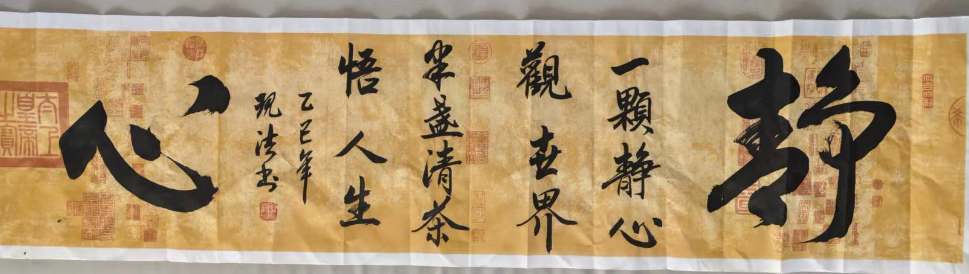 静
一顆静心
觀世界
半盏清茶
悟人生
乙巳年
现法书
心